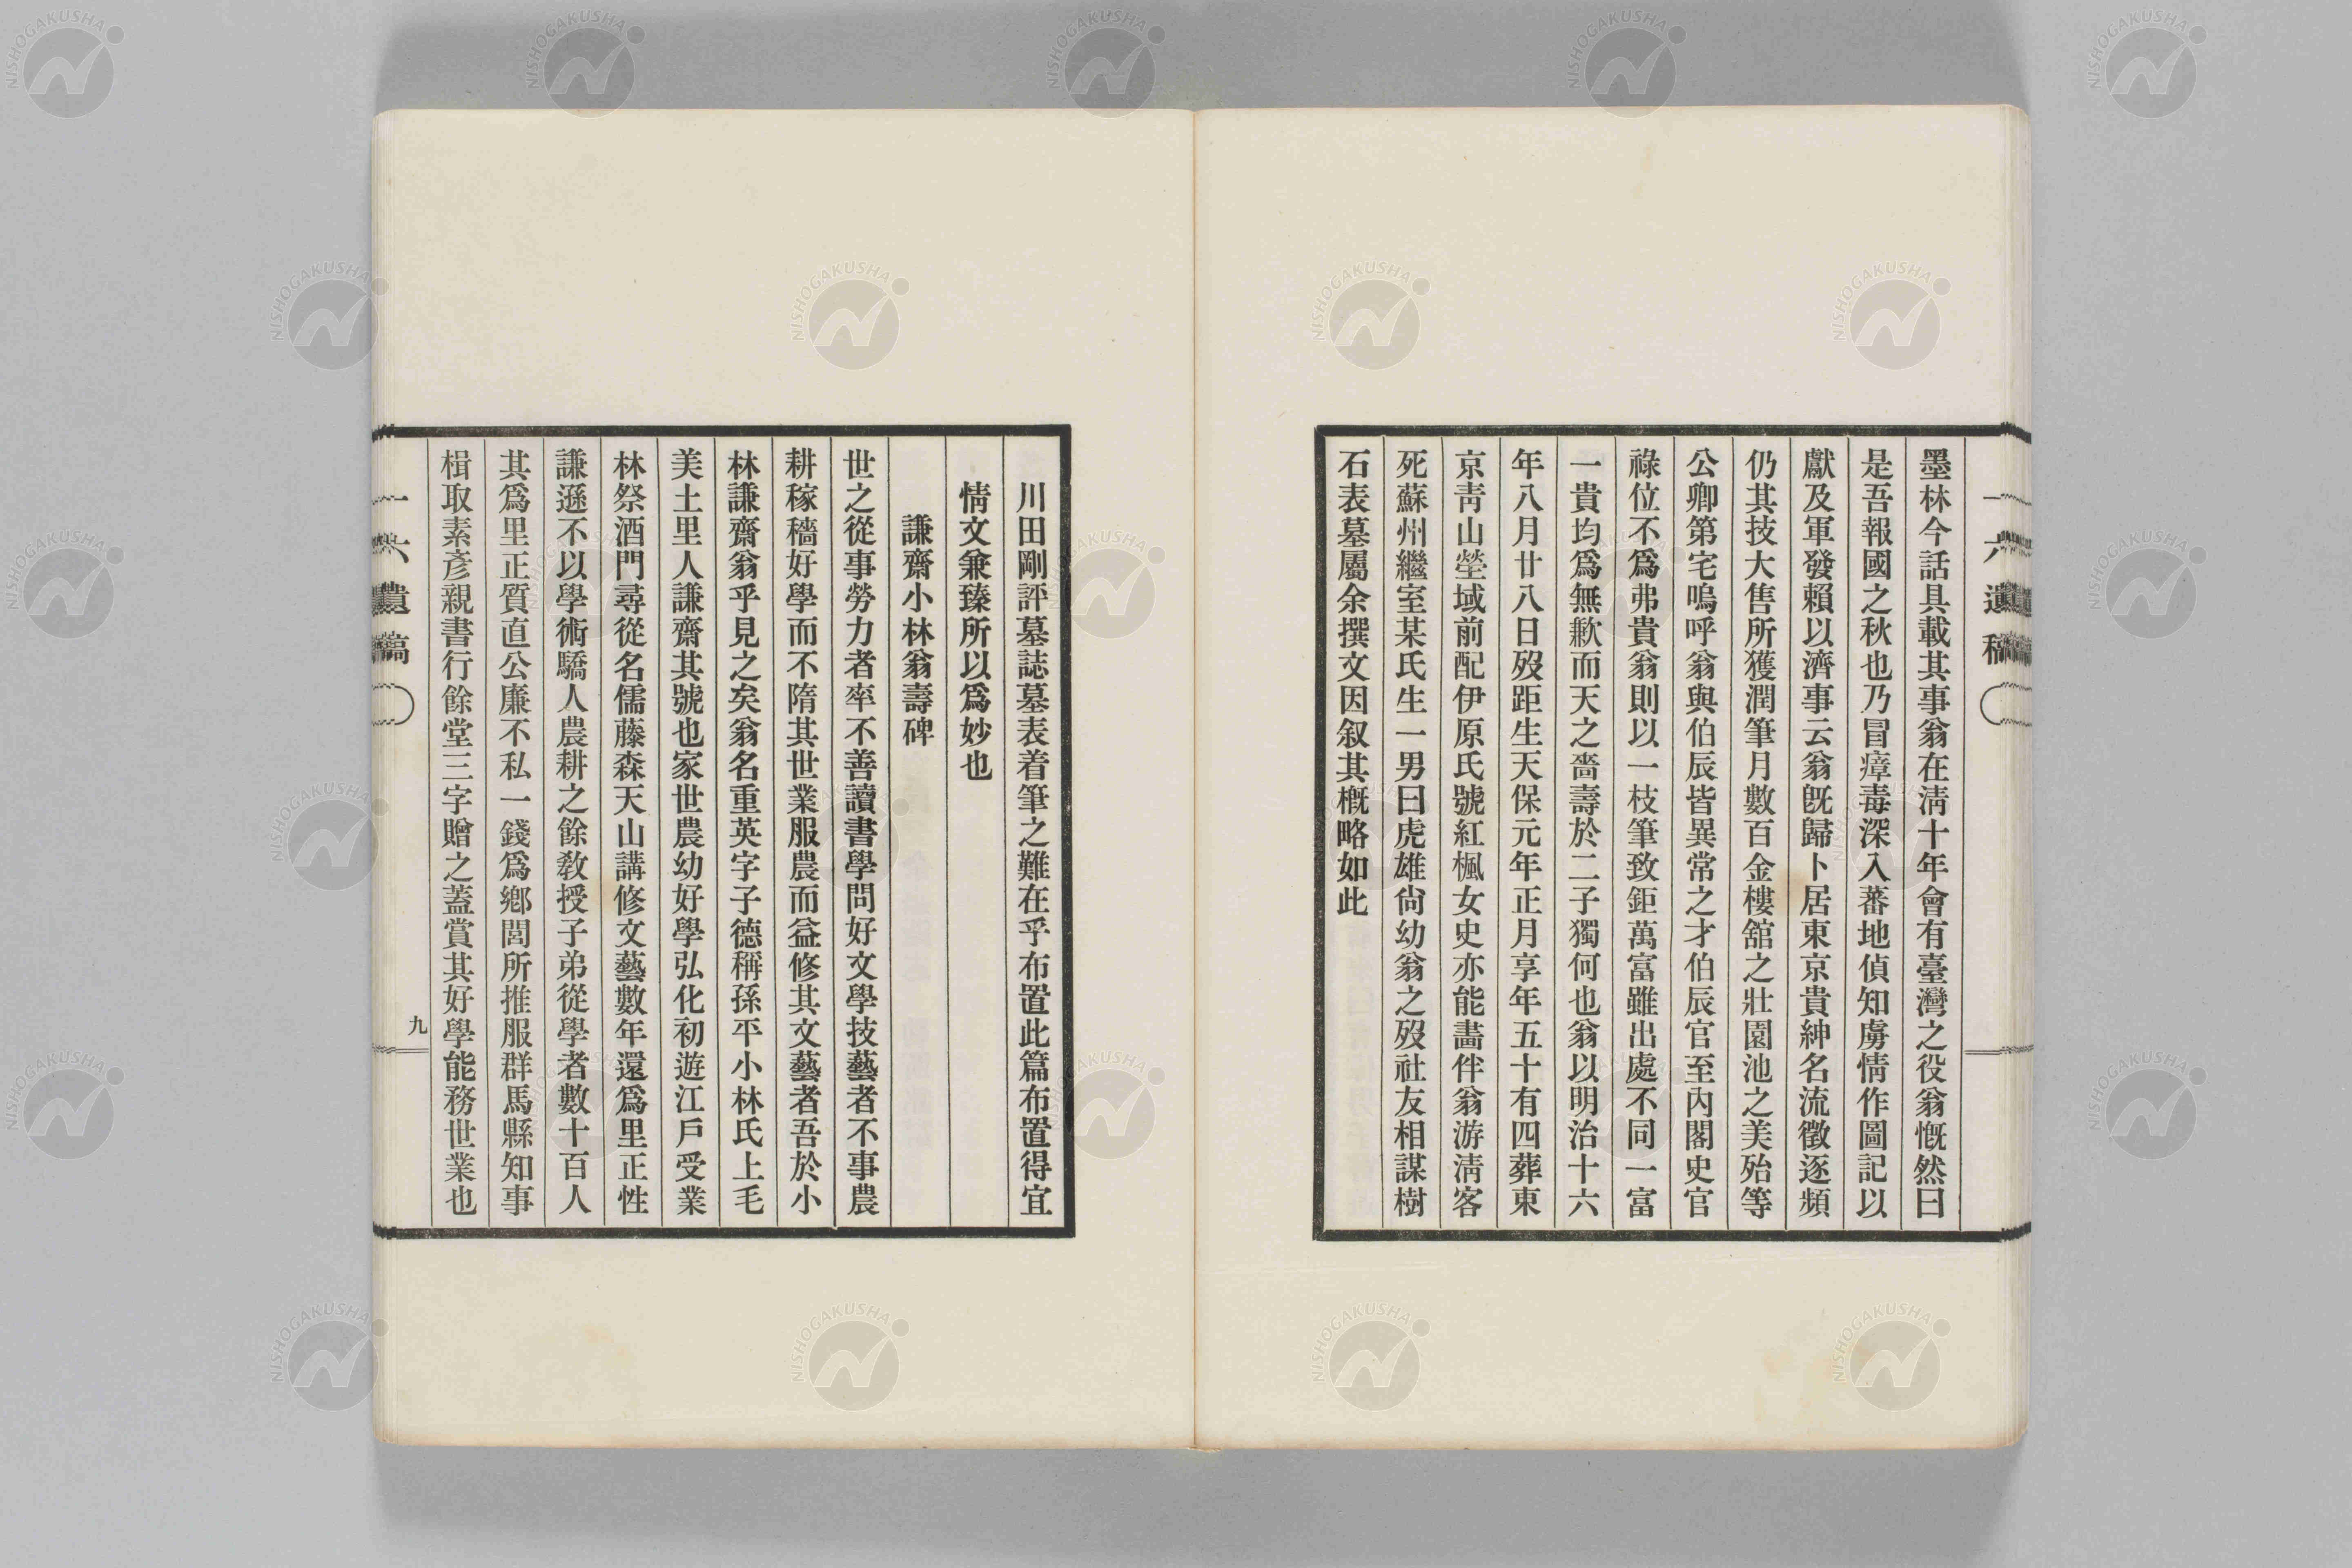 一六遺稿
墨林今話具載其事翁在淸十年會有臺灣之役翁慨然曰
是吾報國之秋也乃冒瘴毒深入蕃地偵知虜情作圖記以
獻及軍發賴以濟事云翁旣歸卜居東京貴紳名流徵逐頻
仍其技大售所獲潤筆月數百金樓舘之壯園池之美殆等
公卿第宅嗚呼翁與伯辰皆異常之才伯辰官至內閣史官
祿位不爲弗貴翁則以一枝筆致鉅萬富雖出處不同一富
一貴均爲無歉而天之嗇壽於二子獨何也翁以明治十六
年八月廿八日歿距生天保元年正月享年五十有四葬東
京靑山塋域前配伊原氏號紅楓女史亦能畵伴翁游淸客
死蘇州繼室某氏生一男曰虎雄尙幼翁之歿社友相謀樹
石表墓屬余撰文因叙其槪略如此
川田剛評墓誌墓表着筆之難在乎布置此篇布置得宜
情文兼臻所以爲妙也
謙齋小林翁壽碑
世之從事勞力者率不善讀書學問好文學技藝者不事農
耕稼穡好學而不隋其世業服農而益修其文藝者吾於小
林謙齋翁乎見之矣翁名重英字子德稱孫平小林氏上毛
美土里人謙齋其號也家世農幼好學弘化初遊江戶受業
林祭酒門尋從名儒藤森天山講修文藝數年還爲里正性
謙遜不以學術驕人農耕之餘敎授子弟從學者數十百人
其爲里正質直公廉不私一錢爲鄕閭所推服群馬縣知事
楫取素彥親書行餘堂三字贈之蓋賞其好學能務世業也
一六遺稿
九
NISHOGAKUSHA